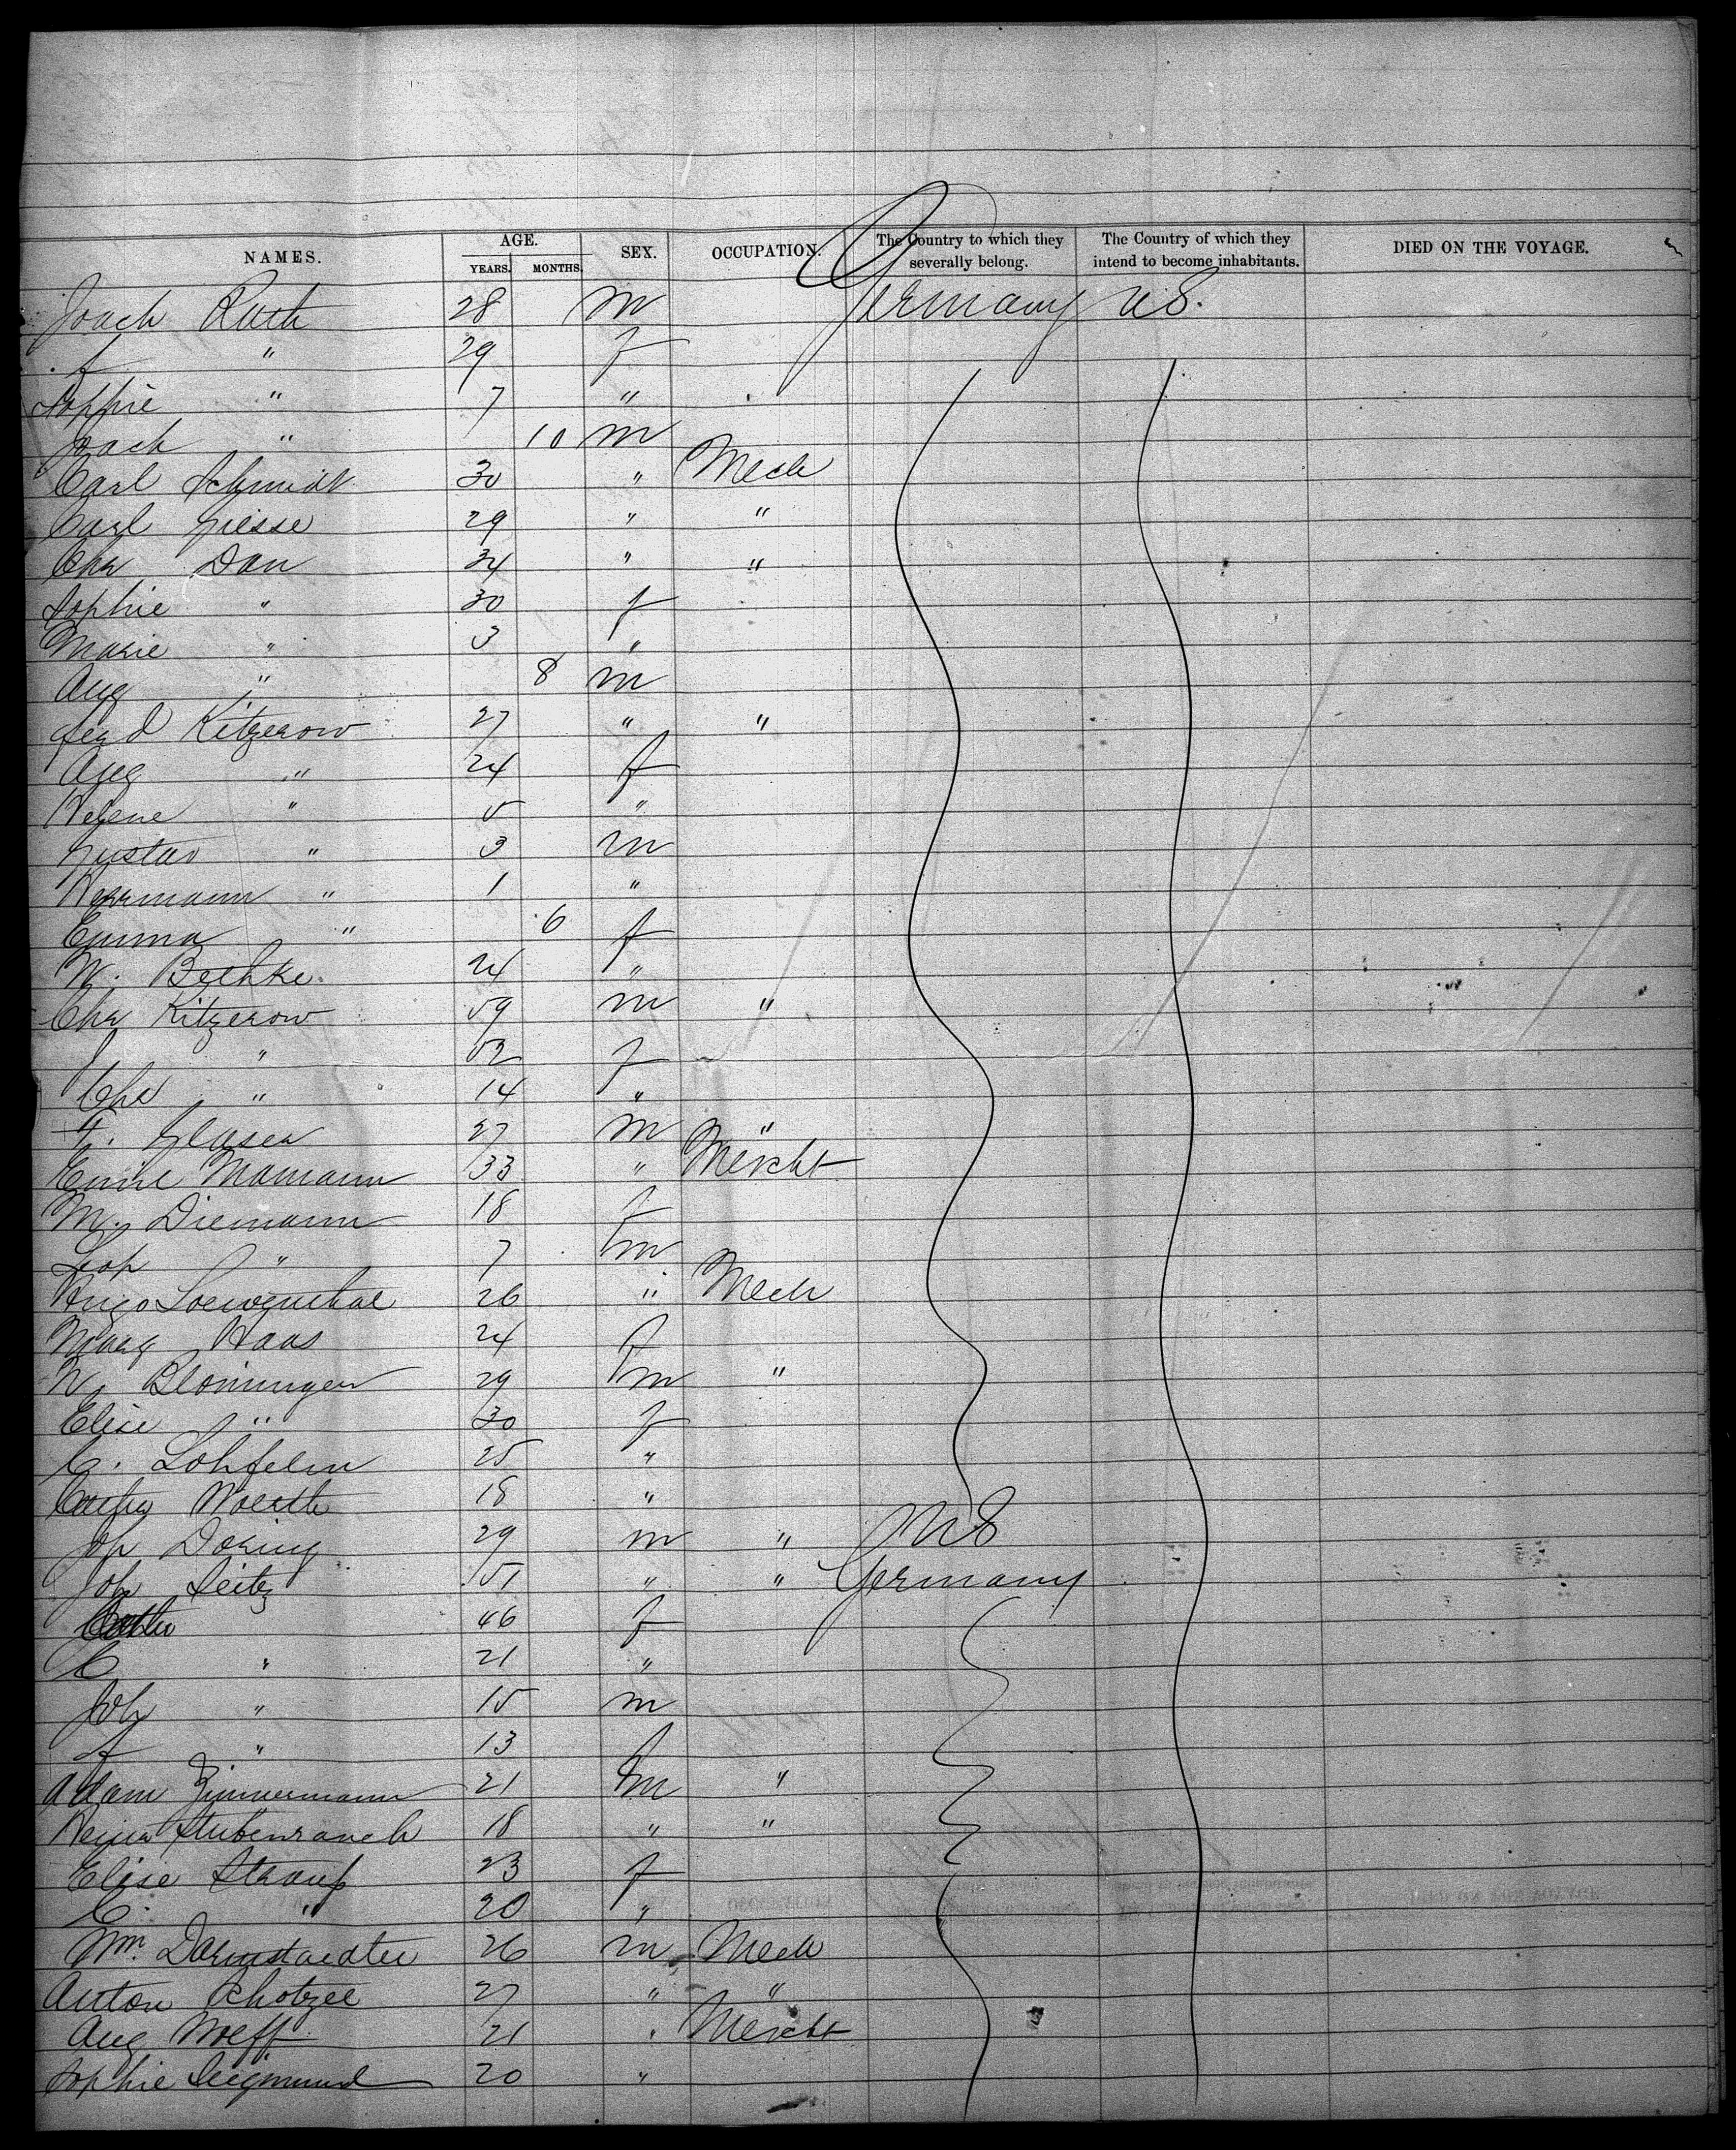 NAMES. AGE. YEARS. MONTHS. SEX. OCCUPATION. The Country to which they severally belong. The Country of which they intend to become inhabitants. DIED ON THE VOYAGE.
Joach Ruth 28 m Germany U S.
F " 29 f
Sophie " 7 "
Joach " 10 m
Carl Schmidt 30 " Mech
Carl Giesse 29 " "
Chr Dau 34 " "
Sophie " 30 f
Marie " 3 "
Aug " 8 m
Ferd Kitzerow 27 " "
Aug " 24 f
Helene " 5 "
Gustav " 3 m
Herrmann " 1 "
Emma " 6 f
W. Bethke 24 "
Chr Kitzerow 59 m "
" 52 f
Chr " 14 "
F. Glaser 27 m "
Emil Mamann 33 " Mercht
M. Diemann 18 f
Leop " 7 m
Hugo Loewenthal 26 " Mech
Marg Haas 24 f
N. Bloninger 29 m "
Elise " 30 f
C. Lohfelm 25 "
Woerth 18 "
Jos Doring 29 m " U S
Joh Seitz 51 " " Germany
46 f
C " 21 "
Joh " 15 m
F " 13 f
Adam Zimmermann 21 m "
Stubenrauch 18 " "
Elise Straub 23 f
C. " 20 "
Wm. Darmstaedter 26 m Mech
Anton Schotzel 27 " "
Aug Wolff 21 " Mercht
Sophie Siegmund 20 "